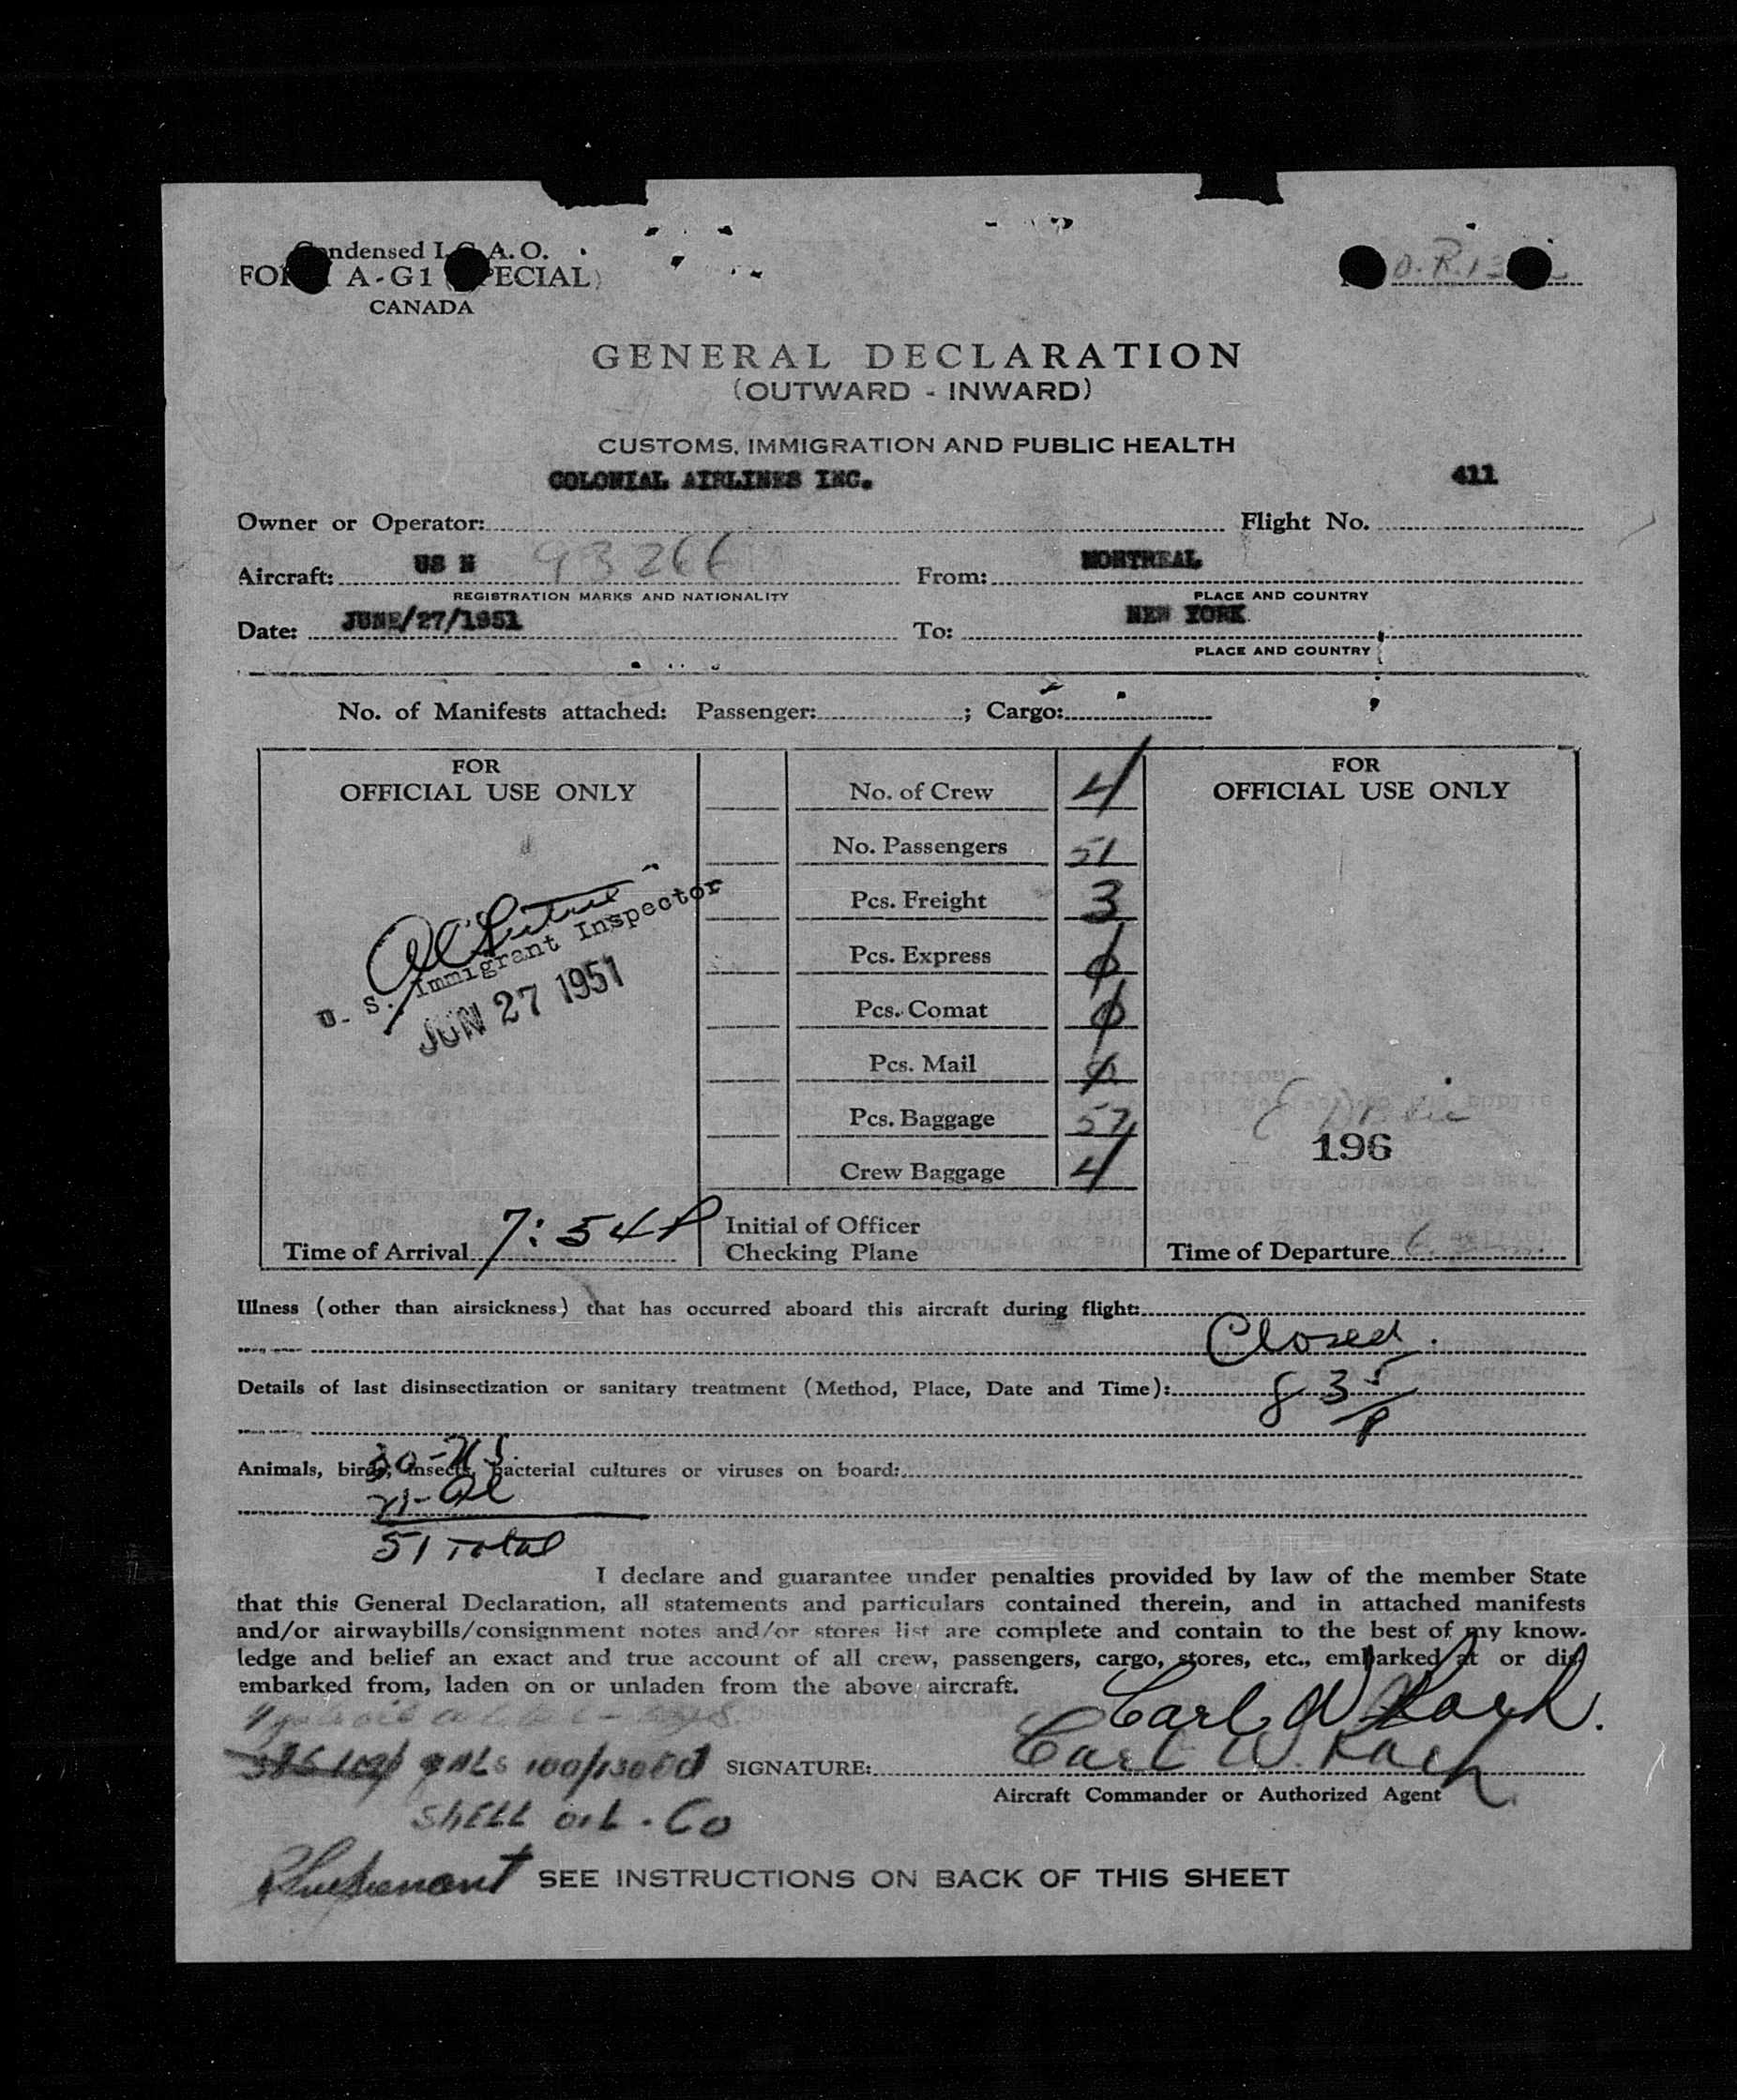 Condensed I.C.A.O.
FORM A-G1 (SPECIAL)
CANADA
O.R.13
GENERAL DECLARATION
(OUTWARD - INWARD)
CUSTOMS, IMMIGRATION AND PUBLIC HEALTH
COLONIAL AIRLINES INC. 411
Owner or Operator: Flight No.
Aircraft: US N 93266 From: MONTREAL
REGISTRATION MARKS AND NATIONALITY PLACE AND COUNTRY
Date: JUNE/27/1951 To: NEW YORK
PLACE AND COUNTRY
No. of Manifests attached: Passenger: ; Cargo:
FOR
OFFICIAL USE ONLY
U. S. Immigrant Inspector
JUN 27 1951
Time of Arrival 7:54P
No. of Crew 4
No. Passengers 51
Pcs. Freight 3
Pcs. Express 0
Pcs. Comat 0
Pcs. Mail
Pcs. Baggage 57
Crew Baggage 4
Initial of Officer
Checking Plane
FOR
OFFICIAL USE ONLY
196
Time of Departure
Illness (other than airsickness) that has occurred aboard this aircraft during flight:
Closed.
Details of last disinsectization or sanitary treatment (Method, Place, Date and Time): 8 35
P
30-US
Animals, birds, insects, bacterial cultures or viruses on board:
21-Al
51 Total
I declare and guarantee under penalties provided by law of the member State
that this General Declaration, all statements and particulars contained therein, and in attached manifests
and/or airwaybills/consignment notes and/or stores list are complete and contain to the best of my know-
ledge and belief an exact and true account of all crew, passengers, cargo, stores, etc., embarked at or dis
embarked from, laden on or unladen from the above aircraft.
Carl W Kach.
gals 100/130 SIGNATURE: Carl W. Kach
Aircraft Commander or Authorized Agent
SHELL OIL. Co
SEE INSTRUCTIONS ON BACK OF THIS SHEET